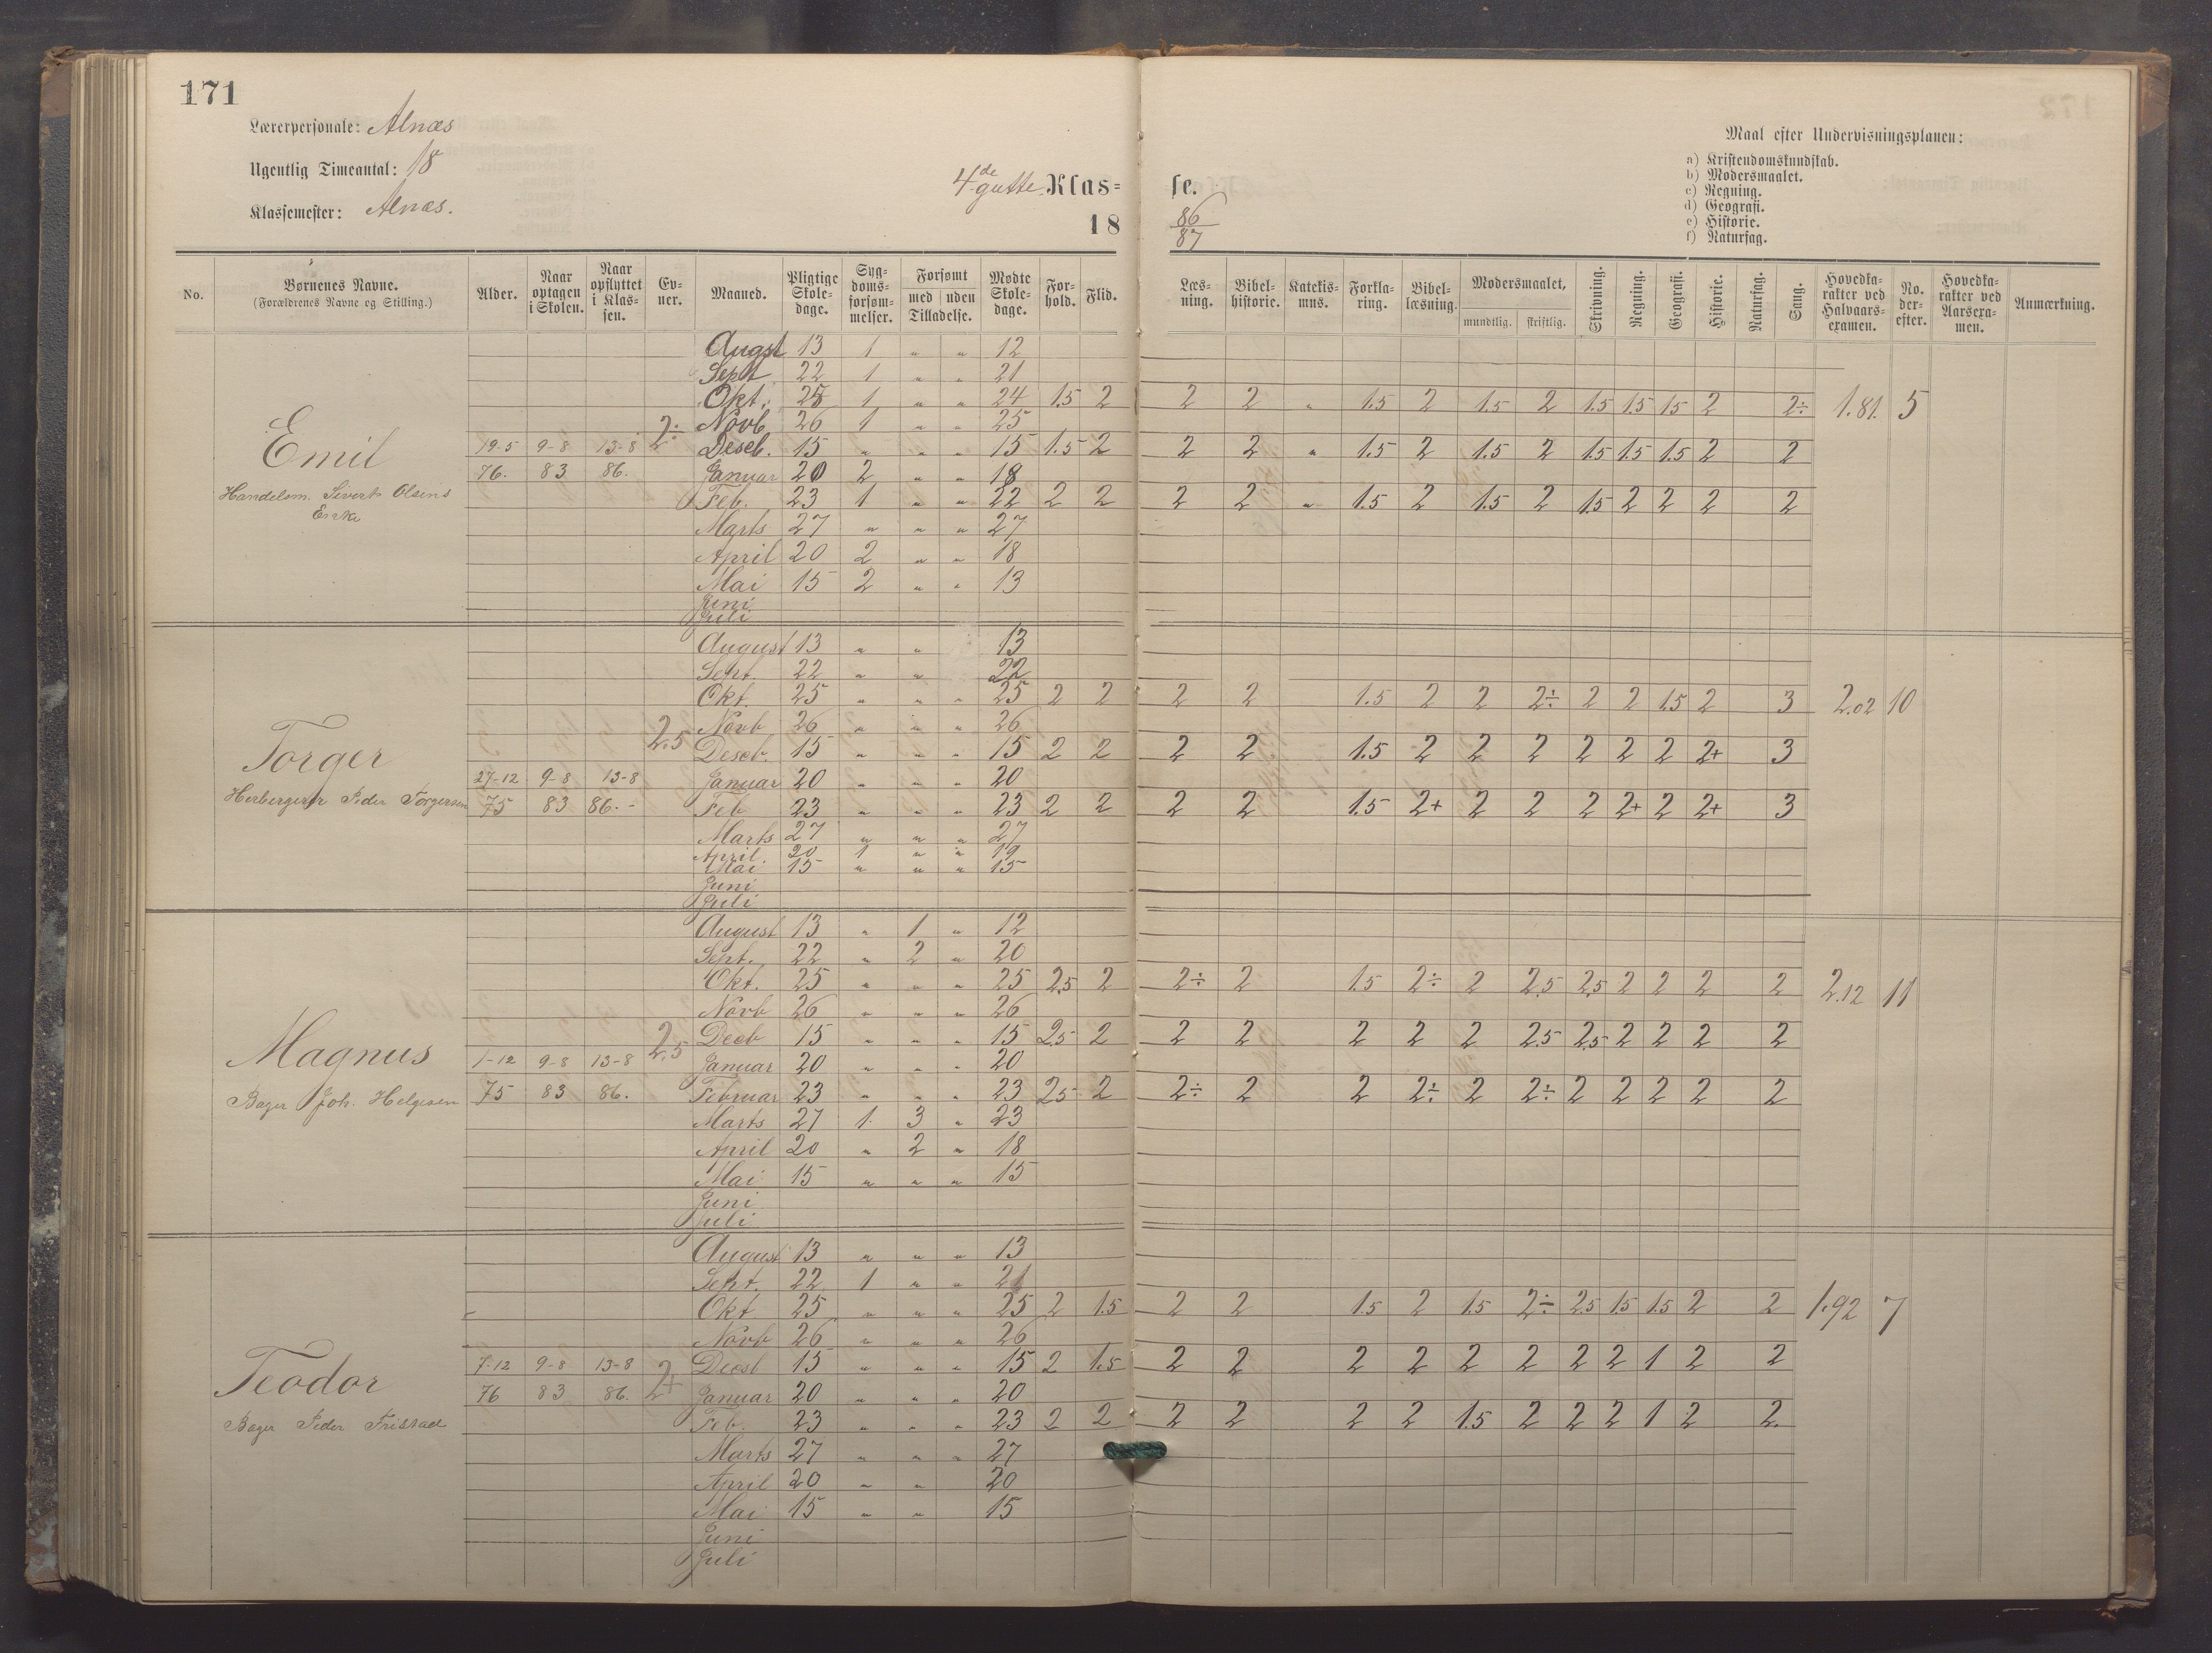 171
Lærerpersonale: Alnæs
Ugentlig Timeantal: 18
Klassemester: Alnæs.
4de gutte Klas= se.
18 86/87
Maal efter Undervisningsplanen:
a) Kristendomskundskab.
b) Modersmaalet.
c) Regning.
d) Geografi.
e) Historie.
f) Naturfag.
No. Børnenes Navne. (Forældrenes Navne og Stilling.) Alder. Naar optagen i Skolen. Naar opflyttet i Klas-sen. Ev-ner. Maaned. Pligtige Skole-dage. Syg-doms-forsøm-melser. Forsømt med uden Tilladelse. Mødte Skole-dage. For-hold. Flid. Læs-ning. Bibel-historie. Katekis-mus. Forkla-ring. Bibel-læsning. Modersmaalet, mundtlig. skriftlig. Skrivning. Regning. Geografi. Historie. Naturfag. Sang. Hovedka-rakter ved Halvaars-examen. No. der-efter. Hovedka-rakter ved Aarsexa-men. Anmærkning.
Augst 13 1 " " 12
Sept 22 1 " " 21
Okt. 25 1 " " 24 1.5 2 2 2 " 1.5 2 1.5 2 1.5 1.5 1.5 2 2÷ 1.81. 5
2÷ Novb 26 1 " " 25
Emil 19-5 9-8 13-8 Deseb. 15 " " " 15 1.5 2 2 2 " 1.5 2 1.5 2 1.5 1.5 1.5 2 2
76. 83 86. Januar 20 2 " " 18
Handelsm. Sivert Olsens Feb. 23 1 " " 22 2 2 2 2 " 1.5 2 1.5 2 1.5 2 2 2 2
Enke Marts 27 " " " 27
April 20 2 " " 18
Mai 15 2 " " 13
Juni
Juli
August 13 " " 13
Sept. 22 " " 22
Okt. 25 " " " 25 2 2 2 2 1.5 2 2 2÷ 2 2 1.5 2 3 2.02 10
2.5 Novb 26 " " " 26
Torger Deseb. 15 " " " 15 2 2 2 2 1.5 2 2 2 2 2 2 2+ 3
27-12 9-8 13-8 Januar 20 " " " 20
Herbergerer Peder Torgersen 75 83 86.- Feb 23 " " " 23 2 2 2 2 1.5 2+ 2 2 2 2+ 2 2+ 3
Marts 27 " " " 27
April. 20 1 " " 19
Mai 15 " " " 15
Juni
Juli
August 13 " 1 " 12
Sept. 22 " 2 " 20
Okt. 25 " " " 25 2.5 2 2÷ 2 1.5 2÷ 2 2.5 2.5 2 2 2 2 2.12 11
Novb 26 " " " 26
2.5 Deeb 15 " " " 15 2.5 2 2 2 2 2 2 2.5 2.5 2 2 2 2
Magnus 1-12 9-8 13-8 Januar 20 " " " 20
Bager Joh. Helgesen 75 83 86. Februar 23 " " " 23 2.5 2 2÷ 2 2 2÷ 2 2÷ 2 2 2 2 2
Marts 27 1 3 " 23
April 20 " 2 " 18
Mai 15 " " " 15
Juni
Juli
August 13 " " " 13
Sept. 22 1 " " 21
Okt 25 " " " 25 2 1.5 2 2 1.5 2 1.5 2÷ 2.5 1.5 1.5 2 2 1.92 7
Novb 26 " " " 26
7-12 9-8 13-8 Decsb 15 " " " 15 2 1.5 2 2 2 2 2 2 2 2 1 2 2
Teodor 76 83 86. 2+ Januar 20 " " " 20
Bager Peder Tristad Feb. 23 " " " 23 2 2 2 2 2 2 1.5 2 2 2 1 2 2.
Marts 27 " " " 27
April 20 " " 20
Mai 15 " " 15
Juni
Juli